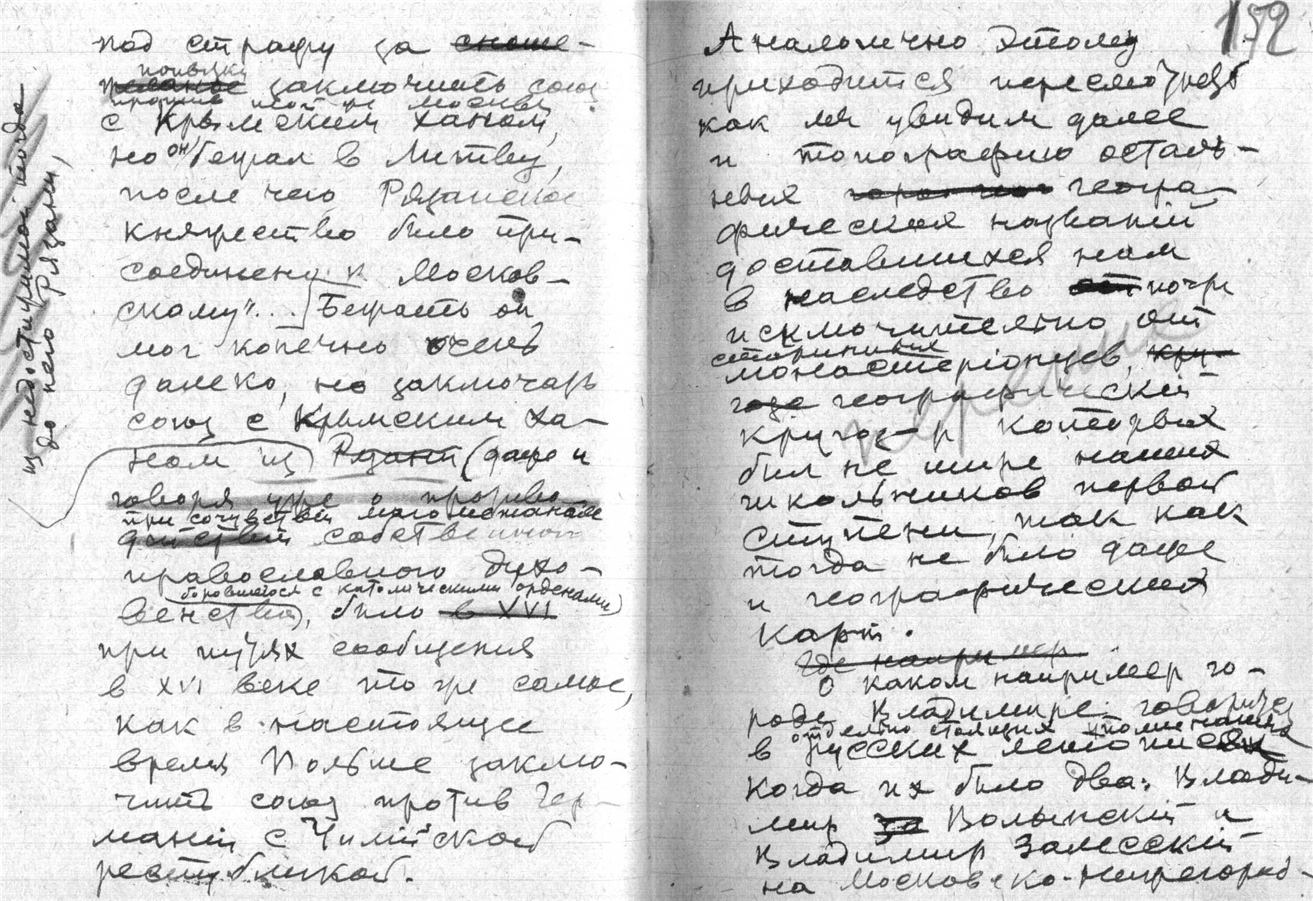 под стражу за сноше-
попытку
заключить союз
против него и Москвы
с Крымским ханом,
но он бежал в Литву,
после чего Рязанское
княжество было при-
соединено к Москов-
скому"... Бежать он
мог конечно очень
далеко, но заключать
союз с Крымским ха-
ном из Рязани (даже и
говоря уже о
при сочувствии
собственного
православного духо-
боровшегося с католическими орденами)
венства), было в XVI
при путях сообщения
в XVI веке то же самое,
как в настоящее
время Польше заклю-
чить союз против Гер-
маніи с Чилійской
республикой.
из недостижимой тогда
до него Рязани,
152
Аналогично этому
приходится пересмотреть
как мы увидим далее
и топографию осталь-
ных геогра-
фических названій
доставшихся нам
в наследство от почти
исключительно от
старинных
монастеріонцев, кру-
гозо географический
кругозор которых
был не шире наших
школьников первой
ступени, так как
тогда не было даже
и географических
карт.
Где например
О каком например го-
роде Владимире говорится
в отдельно стоящих упоминаниях
русских летописей
когда их было два: Влади-
мир за Волынскій и
Владимир Залесскій
на Московско-Нижегород-